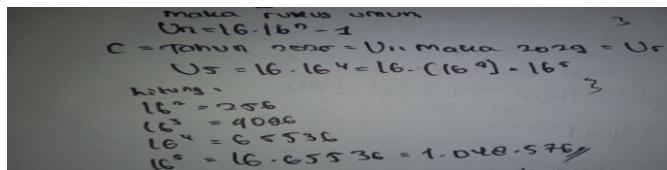 maka rumus umum
Un = 16 . 16ⁿ - 1 3
C = Tahun 2025 = U1, maka 2029 = U5
U5 = 16 . 16⁴ = 16 . (16⁴) = 16⁵
hitung : 3
16² = 256
16³ = 4096
16⁴ = 65536
16⁵ = 16 . 65536 = 1.048.576